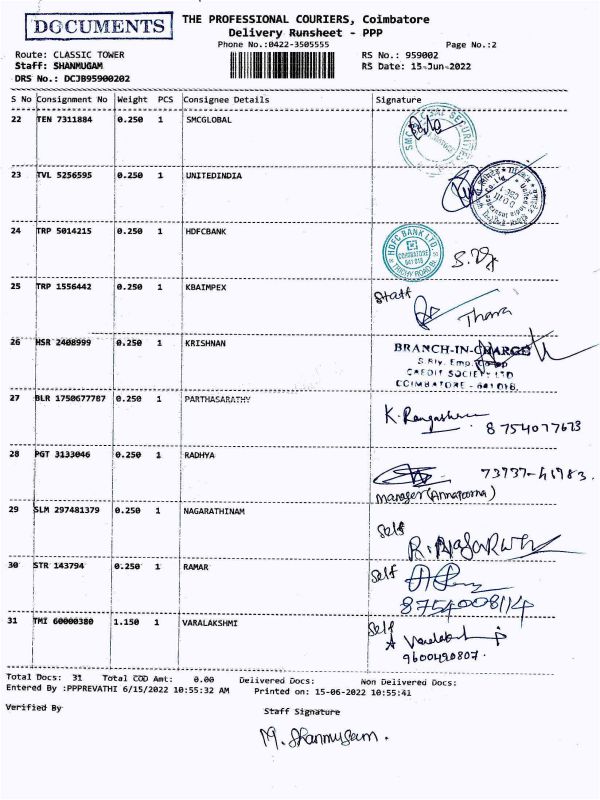 DOCUMENTS
THE PROFESSIONAL COURIERS, Coimbatore
Delivery Runsheet - PPP
Phone No.:0422-3505555 Page No.:2
Route: CLASSIC TOWER RS No.: 959002
Staff: SHANMUGAM RS Date: 15-Jun-2022
DRS No.: DCJB95900202
S No Consignment No Weight PCS Consignee Details Signature
22 TEN 7311884 0.250 1 SMCGLOBAL
23 TVL 5256595 0.250 1 UNITEDINDIA
24 TRP 5014215 0.250 1 HDFCBANK
HDFC BANK LTD
COIMBATORE
641 018
TRICHY ROAD
25 TRP 1556442 0.250 1 KBAIMPEX
Staff
Thara
26 HSR 2408999 0.250 1 KRISHNAN
BRANCH-IN-CHARGE
S.Rly. Emp. Co-op
CREDIT SOCIETY LTD
COIMBATORE - 641 018.
27 BLR 1750677787 0.250 1 PARTHASARATHY
8754077673
28 PGT 3133046 0.250 1 RADHYA
73737-41983.
manager (Annapoorna)
29 SLM 297481379 0.250 1 NAGARATHINAM
Self
30 STR 143794 0.250 1 RAMAR
Self
8754008114
31 TMI 60000380 1.150 1 VARALAKSHMI
Self
9600490807.
Total Docs: 31 Total COD Amt: 0.00 Delivered Docs: Non Delivered Docs:
Entered By :PPPREVATHI 6/15/2022 10:55:32 AM Printed on: 15-06-2022 10:55:41
Verified By Staff Signature
M. Shanmugam.